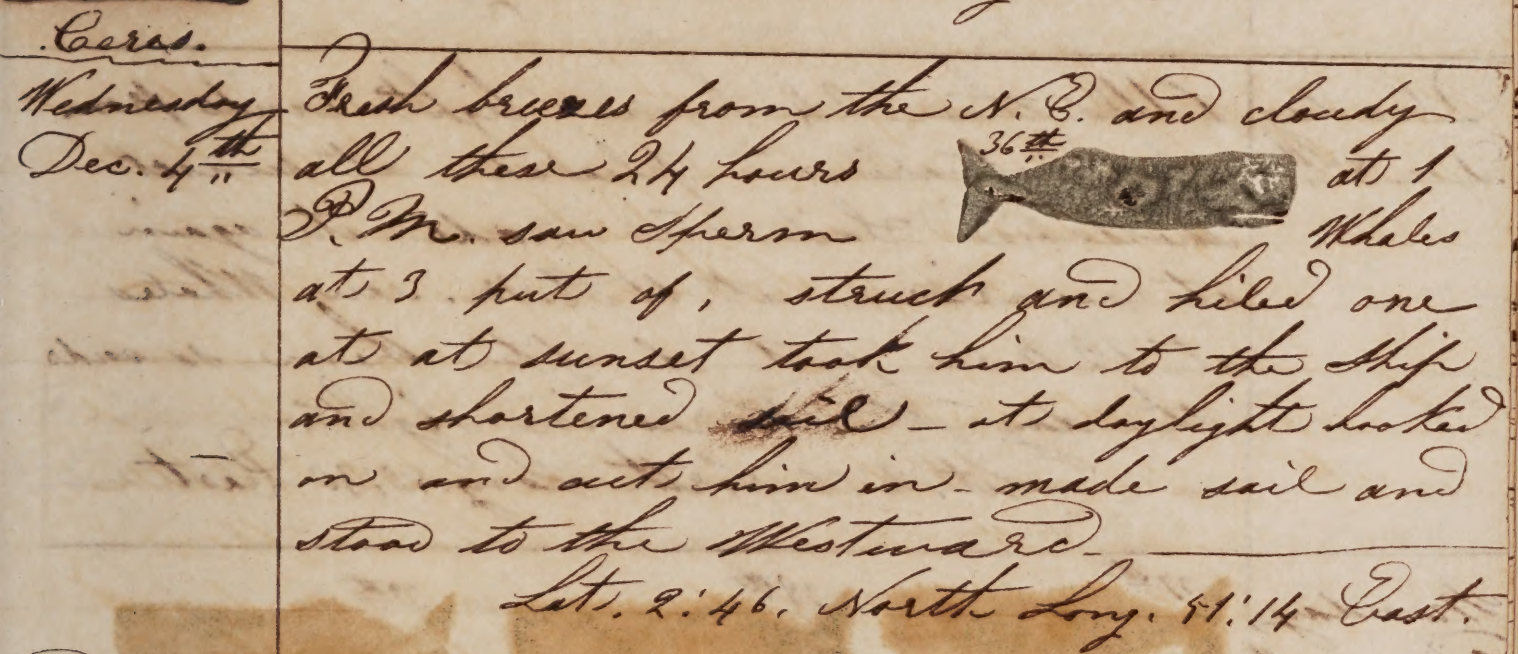 Ceres.
Wednesday
Dec. 4th
Fresh breezes from the N. E. and cloudy
36th
all these 24 hours at 1
P. M. saw Sperm Whales
at 3 put of, struck and kiled one
at at sunset took him to the ship
and shortened sail - at daylight hooked
on and cut him in - made sail and
stood to the Westward -
Lat. 2:46. North Long. 51:14 East.